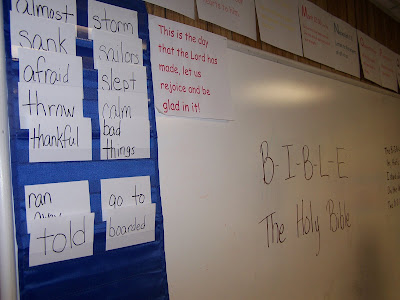 almost
storm
sank
sailors
afraid
slept
throw
calm
thankful
bad
things
ran
away
go to
told
boarded
This is the day
that the Lord has
made, let us
rejoice and be
glad in it!
B-I-B-L-E
The Holy Bible